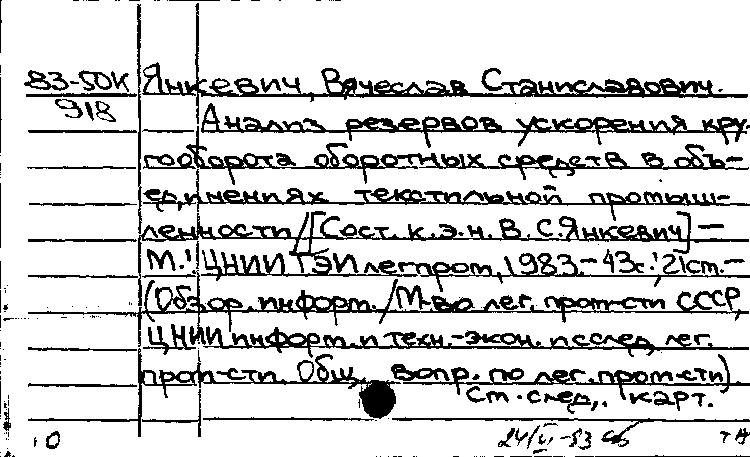 83-50К Янкевич, Вячеслав Станиславович.
918 Анализ резервов ускорения кру-
гооборота оборотных средств в объ-
единениях текстильной промыш-
ленности /[Сост. к.э.н. В.С.Янкевич] —
М.: ЦНИИТЭИлегпром, 1983.- 43с.; 21см.-
(Обзор. информ. / М-во лег. пром-сти СССР,
ЦНИИ информ. и техн.-экон. исслед. лег.
пром-сти. Общ. вопр. по лег. пром-сти).
См. след. карт.
10 24/VI-83